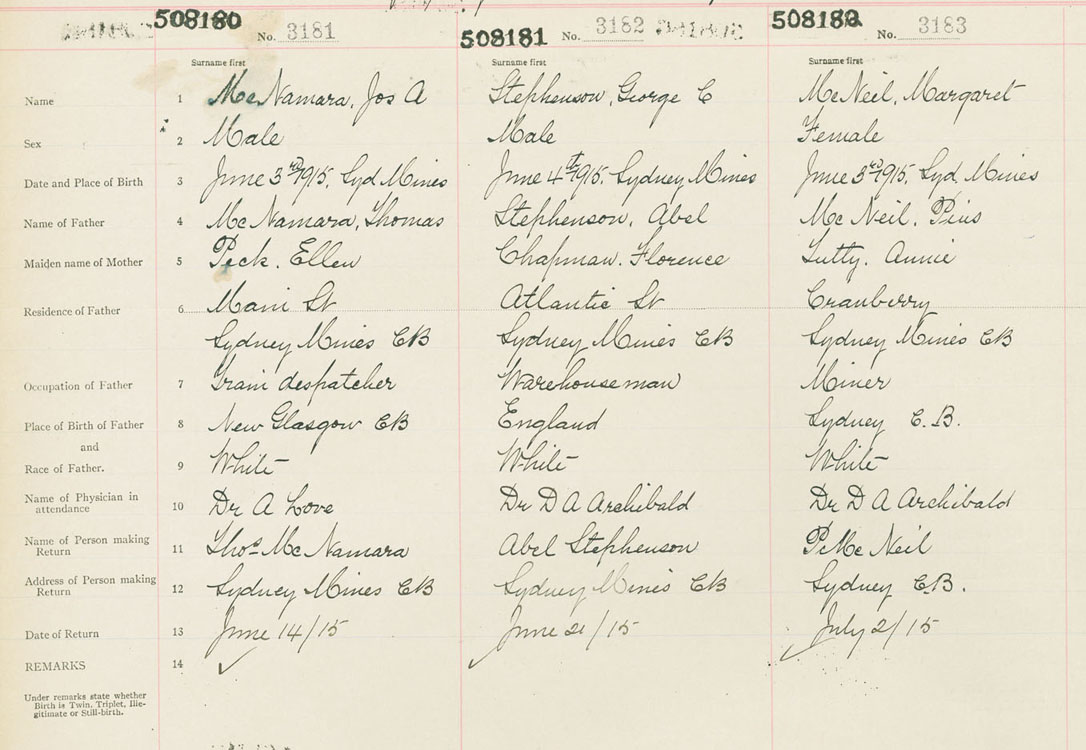 508180 No. 3181 508181 No. 3182 508182 No. 3183
Surname first Surname first Surname first
Name 1 McNamara, Jos A Stephenson, George C McNeil, Margaret
Sex 2 Male Male Female
Date and Place of Birth 3 June 3rd 1915, Syd Mines June 4th 1915. Sydney Mines June 3rd 1915, Syd. Mines
Name of Father 4 McNamara, Thomas Stephenson, Abel McNeil, Pius
Maiden name of Mother 5 Peck, Ellen Chapman. Florence Tutty. Annie
Residence of Father 6 Main St Atlantic St Cranberry
Sydney Mines CB Sydney Mines CB Sydney Mines CB
Occupation of Father 7 Train despatcher Warehouseman Miner
Place of Birth of Father 8 New Glasgow CB England Sydney C.B.
and
Race of Father. 9 White White White
Name of Physician in
attendance 10 Dr A Love Dr D A Archibald Dr D A Archibald
Name of Person making
Return 11 Thos McNamara Abel Stephenson P McNeil
Address of Person making
Return 12 Sydney Mines CB Sydney Mines CB Sydney C.B.
Date of Return 13 June 14/15 June 21/15 July 2/15
REMARKS 14
Under remarks state whether
Birth is Twin, Triplet, Ille-
gitimate or Still-birth.